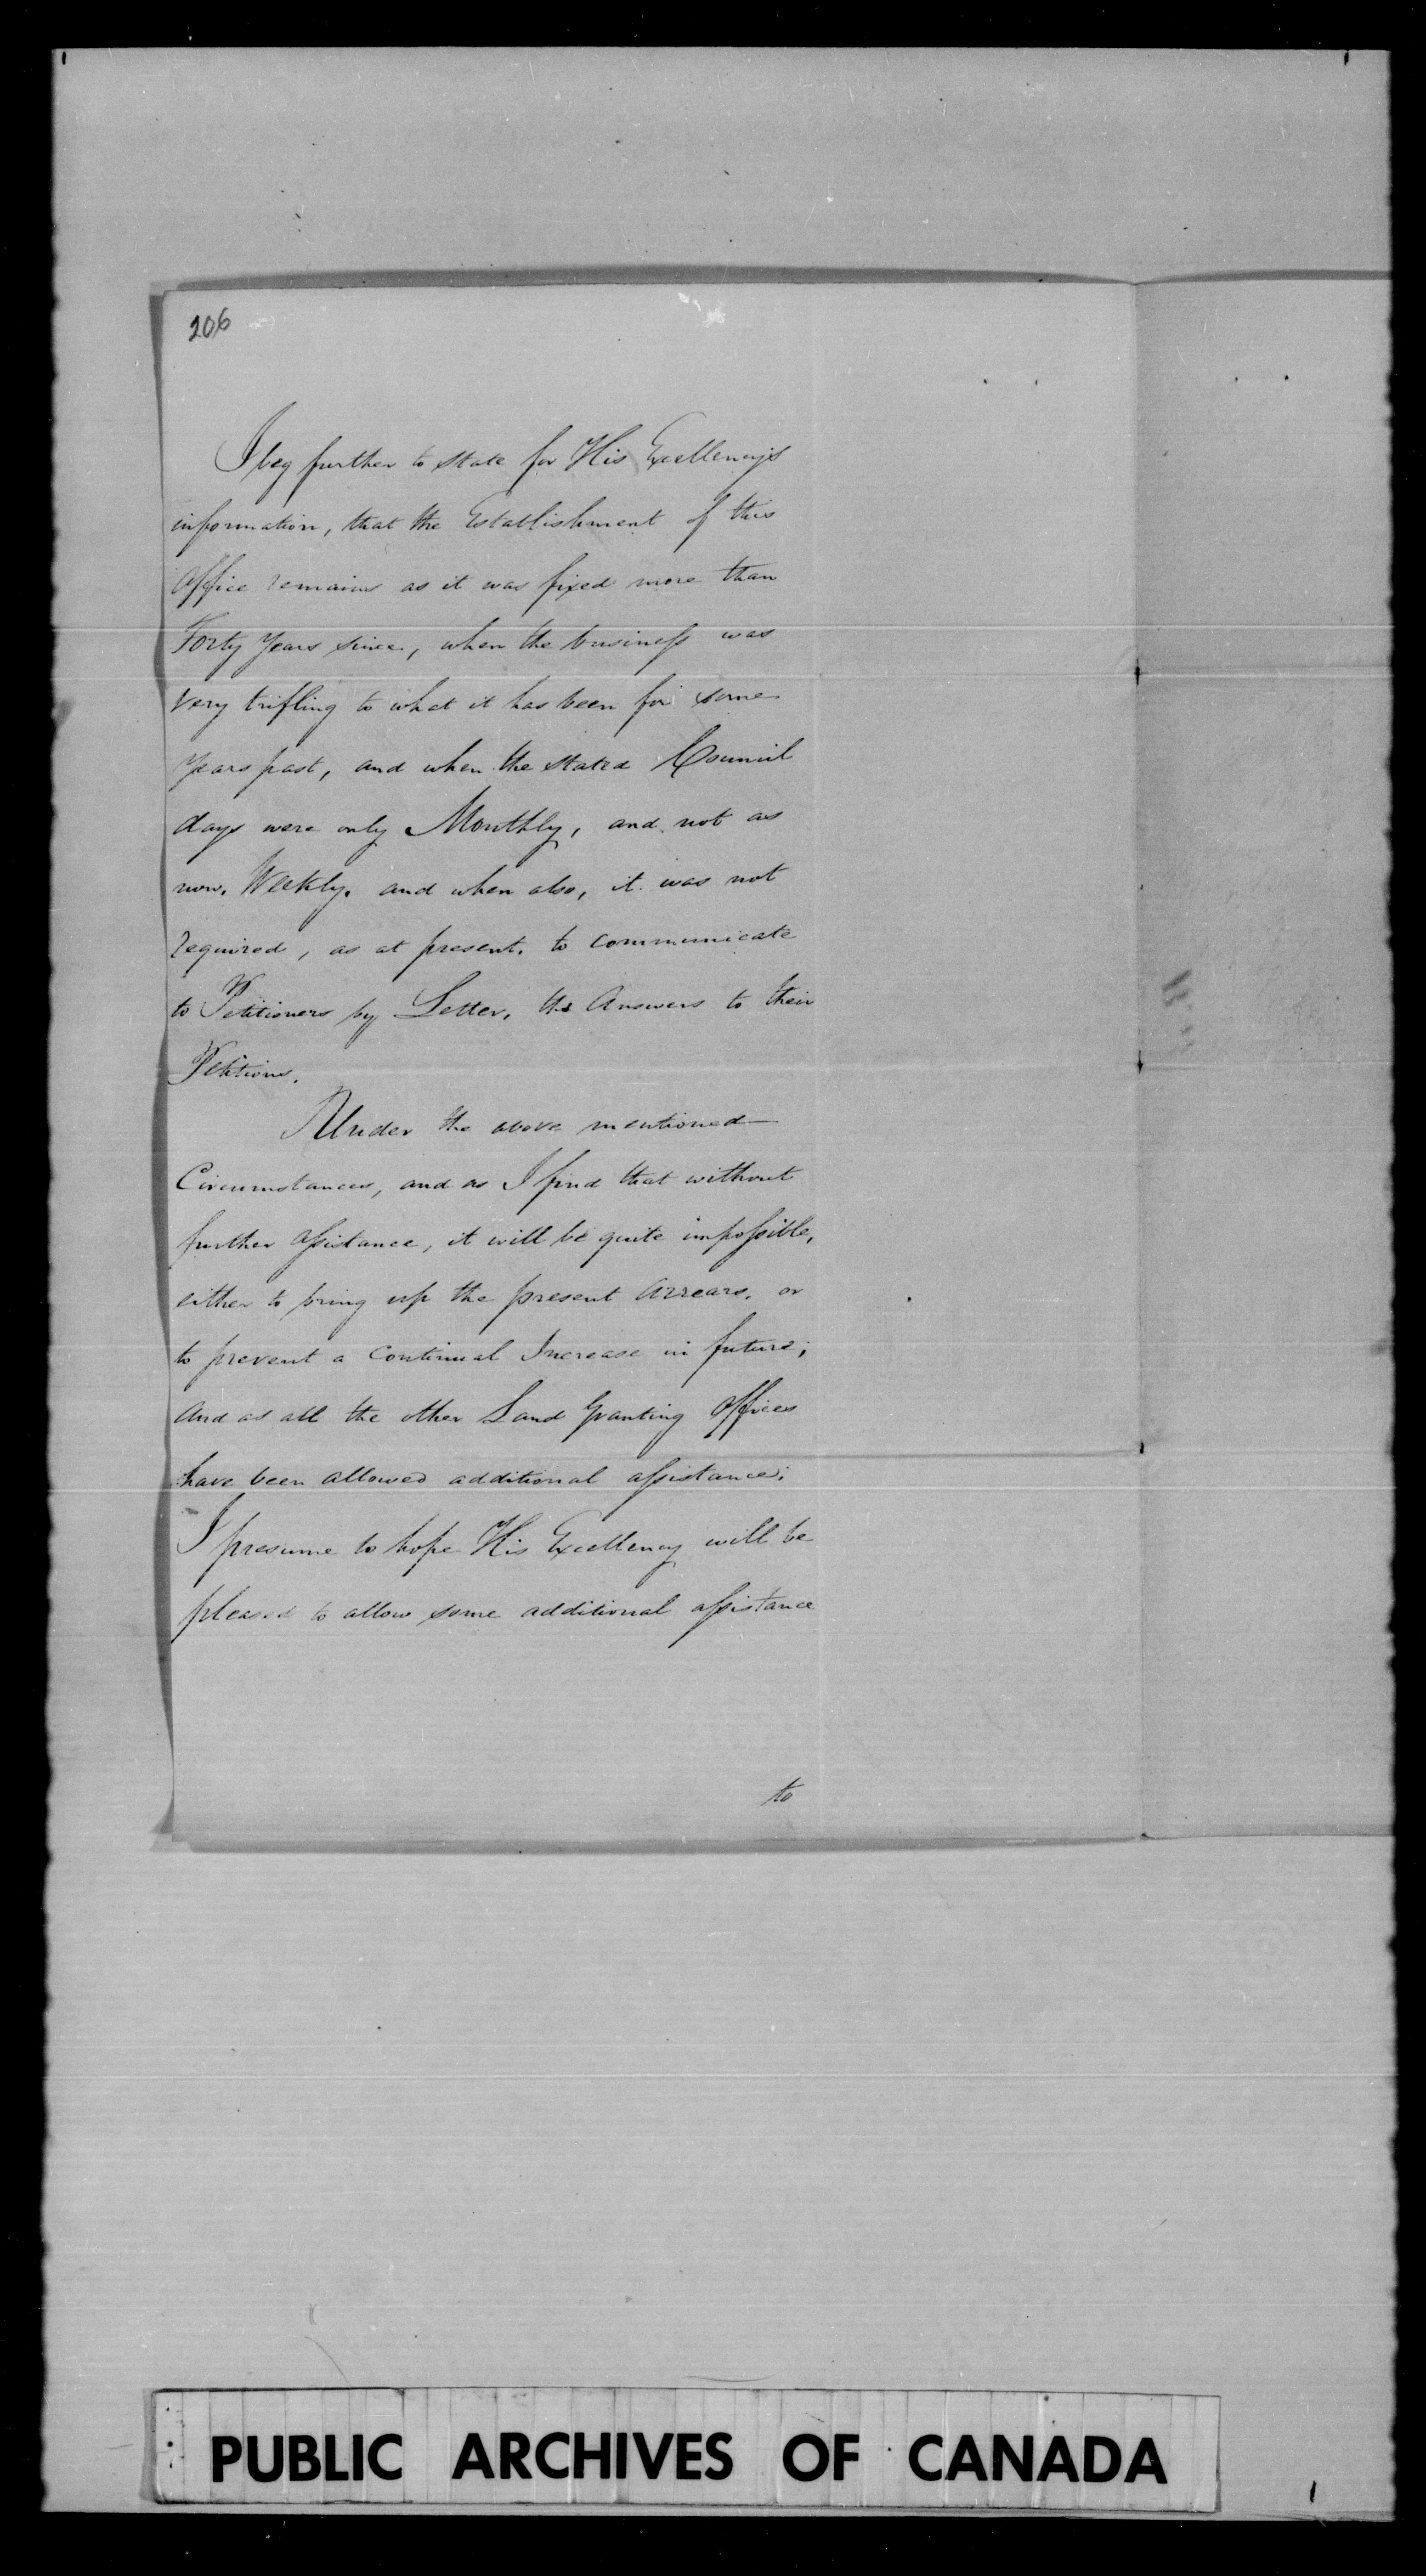 206
I beg further to state for His Excellency's
information, that the Establishment of this
Office remains as it was fixed more than
Forty Years since, when the business was
very trifling to what it has been for some
Years past, and when the stated Council
days were only Monthly, and not as
now, Weekly, and when also, it was not
required, as at present, to communicate
to Petitioners by Letter, the Answers to their
Petitions.
Under the above mentioned
Circumstances, and as I find that without
further assistance, it will be quite impossible,
either to bring up the present Arrears, or
to prevent a Continual Increase in future;
And as all the other Land Granting Offices
have been allowed additional assistance;
I presume to hope His Excellency will be
pleased to allow some additional assistance
to
PUBLIC ARCHIVES OF CANADA